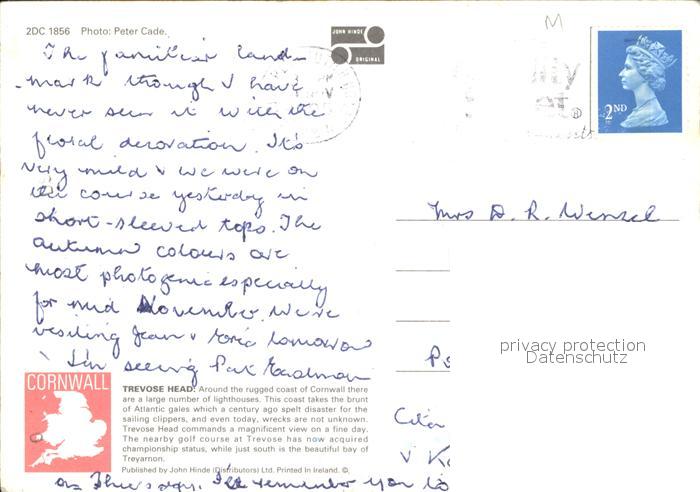 2DC 1856 Photo: Peter Cade.
JOHN HINDE
ORIGINAL
M
2ND
The familiar land-
-mark though I have
never seen it with the
floral decoration. It's
very mild & we were on
the course yesterday in
short-sleeved tops. The
autumn colours are
most photogenic especially
for mid November. We're
visiting Jean & tomorrow
I'm seeing Pat
on Thursday. I'll remember you to
Mrs D. R. Wenzel
privacy protection
Datenschutz
CORNWALL
TREVOSE HEAD: Around the rugged coast of Cornwall there
are a large number of lighthouses. This coast takes the brunt
of Atlantic gales which a century ago spelt disaster for the
sailing clippers, and even today, wrecks are not unknown.
Trevose Head commands a magnificent view on a fine day.
The nearby golf course at Trevose has now acquired
championship status, while just south is the beautiful bay of
Treyarnon.
Published by John Hinde (Distributors) Ltd. Printed In Ireland. ©